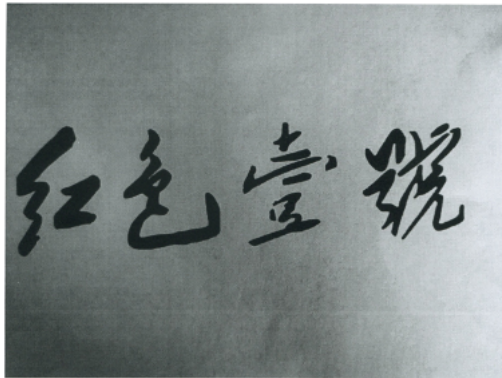 红色壹號